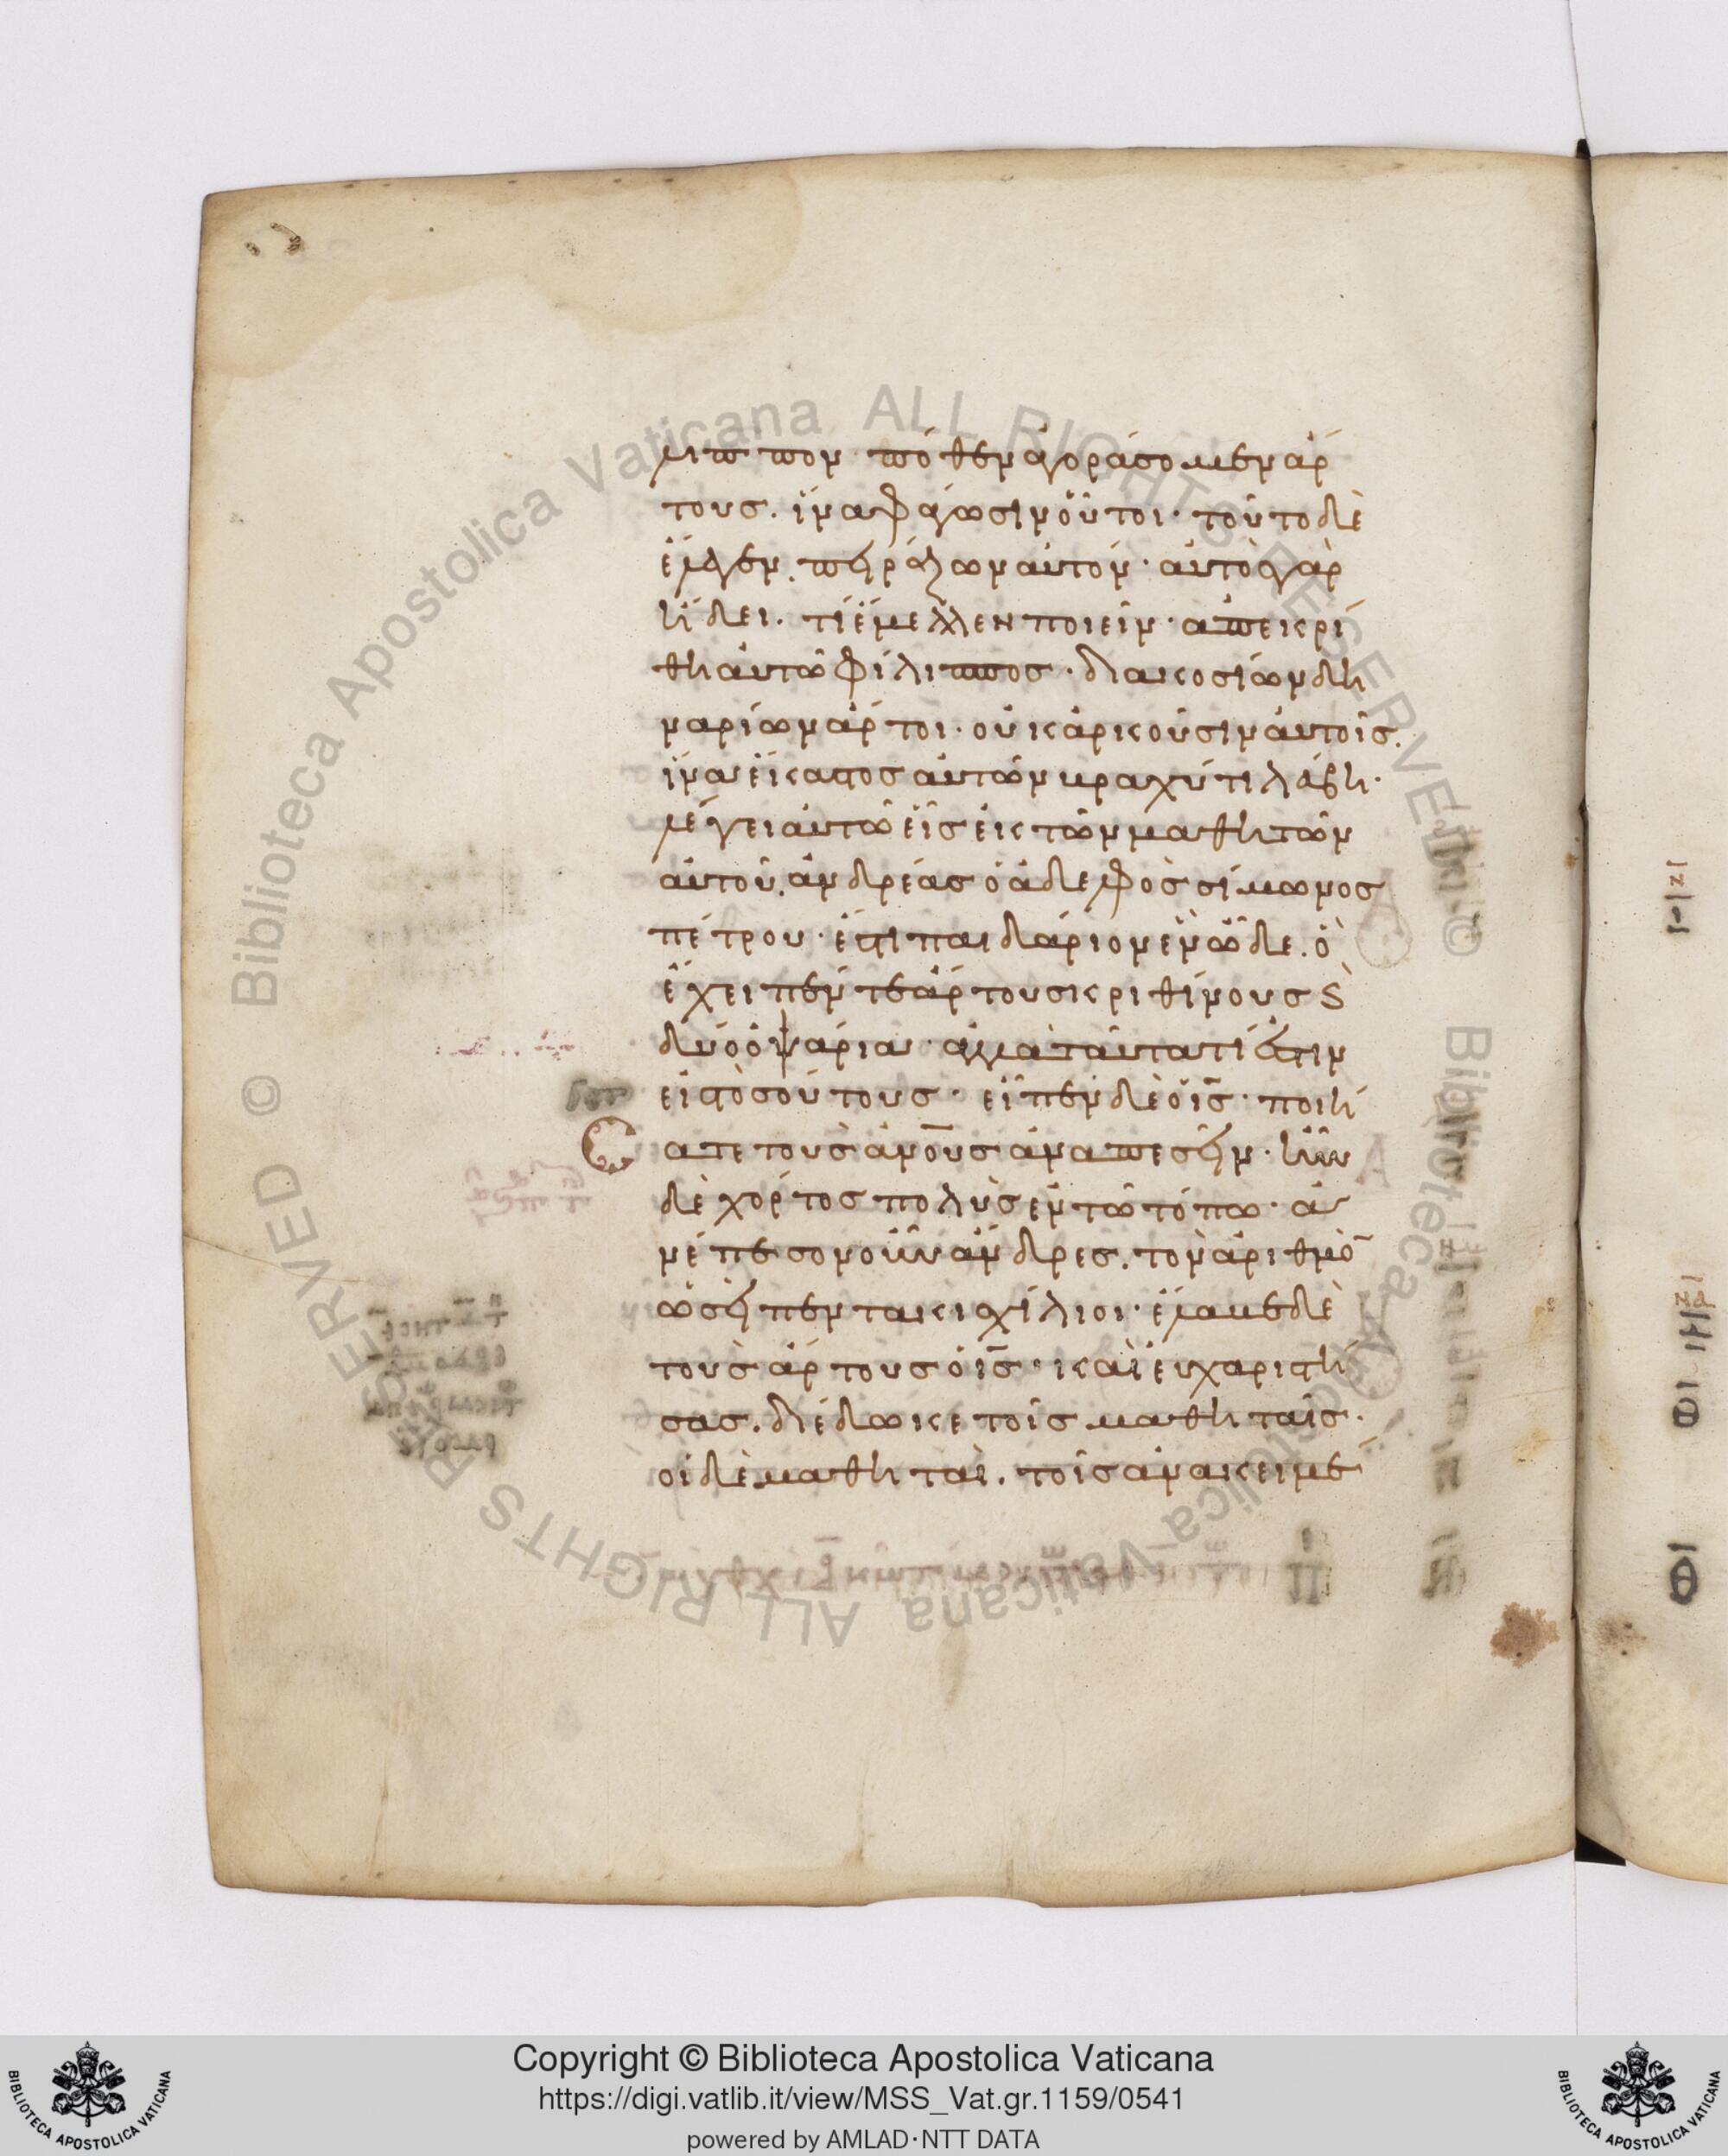 λιππον· πόθεν ἀγοράσομεν ἄρ
τους. ἵνα φάγωσιν οὗτοι· τοῦτο δὲ
ἔλεγεν. πειράζων αὐτόν· αὐτὸς γὰρ
ᾔδει. τί ἔμελλεν ποιεῖν· ἀπεκρί
θη αὐτῶ φίλιππος· διακοσίων δη
ναρίων ἄρτοι· οὐκ ἀρκοῦσιν αὐτοῖς.
ἵνα ἕκαστος αὐτῶν βραχύ τι λάβη·
λέγει αὐτῶ εἷς ἐκ τῶν μαθητῶν
αὐτοῦ. ἀνδρέας ὁ ἀδελφὸς σίμωνος
πέτρου· ἔστι παιδάριον ἓν ὧδε. ὃ
ἔχει πέντε ἄρτους κριθίνους ϗ
δύο ὀψάρια· ἀλλὰ ταῦτα τί ἐστιν
εἰς τοσούτους· εἶπεν δὲ ὁ ἰς· ποιή
σατε τοὺς ἀνους ἀναπεσεῖν· ἦν
δὲ χόρτος πολὺς ἐν τῶ τόπω· ἀ
νέπεσον οὖν ἄνδρες. τὸν ἀριθμὸ
ὡσεὶ πεντακισχίλιοι· ἔλαβε δὲ
τοὺς ἄρτους ὁ ἰς· καὶ εὐχαριστή
σας. διέδωκε τοῖς μαθηταῖς·
οἱ δὲ μαθηταὶ. τοῖς ἀνακειμέ
Copyright © Biblioteca Apostolica Vaticana
https://digi.vatlib.it/view/MSS_Vat.gr.1159/0541
powered by AMLAD·NTT DATA